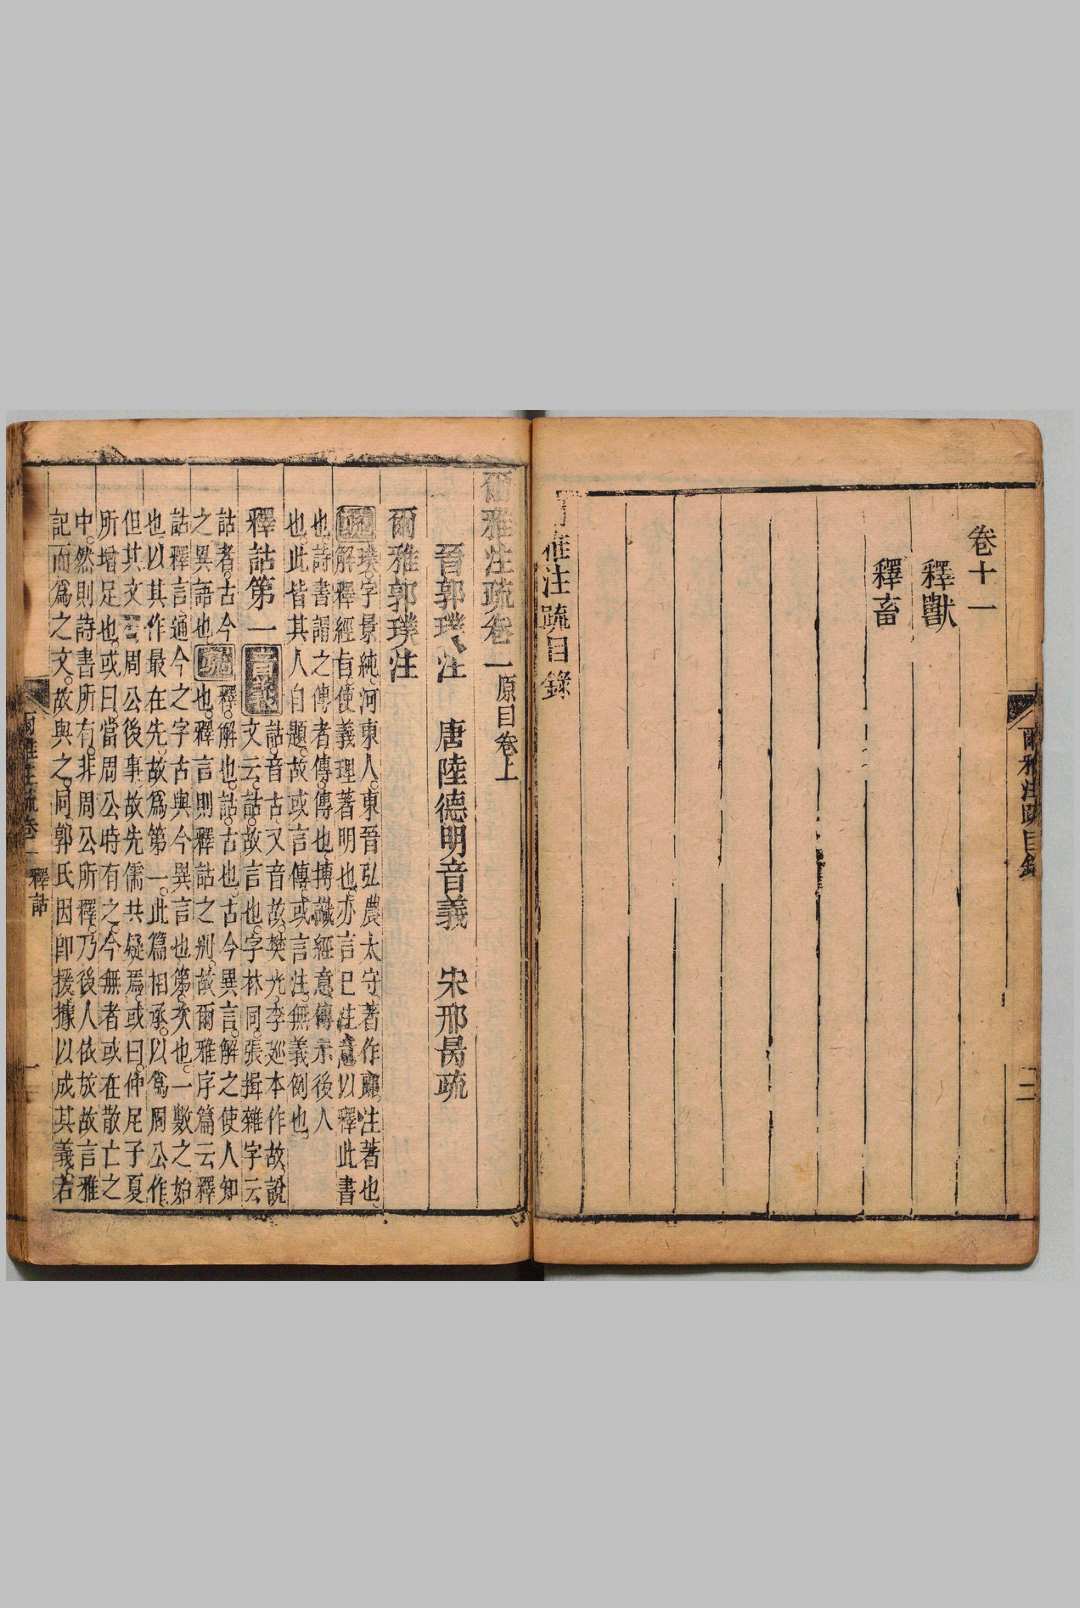 爾雅注疏目錄　二
卷十一
釋獸
釋畜
爾雅注疏目錄
爾雅注疏卷一　原目卷上
晉郭璞注　唐陸德明音義　宋邢昺疏
爾雅郭璞注
疏璞字景純。河東人。東晉弘農太守著作郎。注著也。
解釋經旨使義理著明也。亦言已注意以釋此書
也。詩書謂之傳者。傳。傳也。摶識經意。傳示後人
也。此皆其人自題。故或言傳或言注。無義例也。
釋詁第一　音義詁。音古。又音故。樊光。李廵本作故。說
文云。詁。故言也。字林同。張揖雜字云
詁者。古今
之異語也　疏釋。解也。詁。古也。古今異言。解之使人知
也。釋言則釋詁之別。故爾雅序篇云釋
詁釋言通今之字。古與今異言也。第。次也。一數之始
也。以其作最在先。故爲第一。此篇相承。以爲周公作。
但其文有周公後事。故先儒共疑焉。或曰。仲尼子夏
所增足也。或曰。當周公時有之。今無者或在散亡之
中。然則詩書所有。非周公所釋。乃後人依放故言雅
記而爲之文。故與之同。郭氏因卽援據以成其義。若
爾雅注疏卷一　釋詁　一